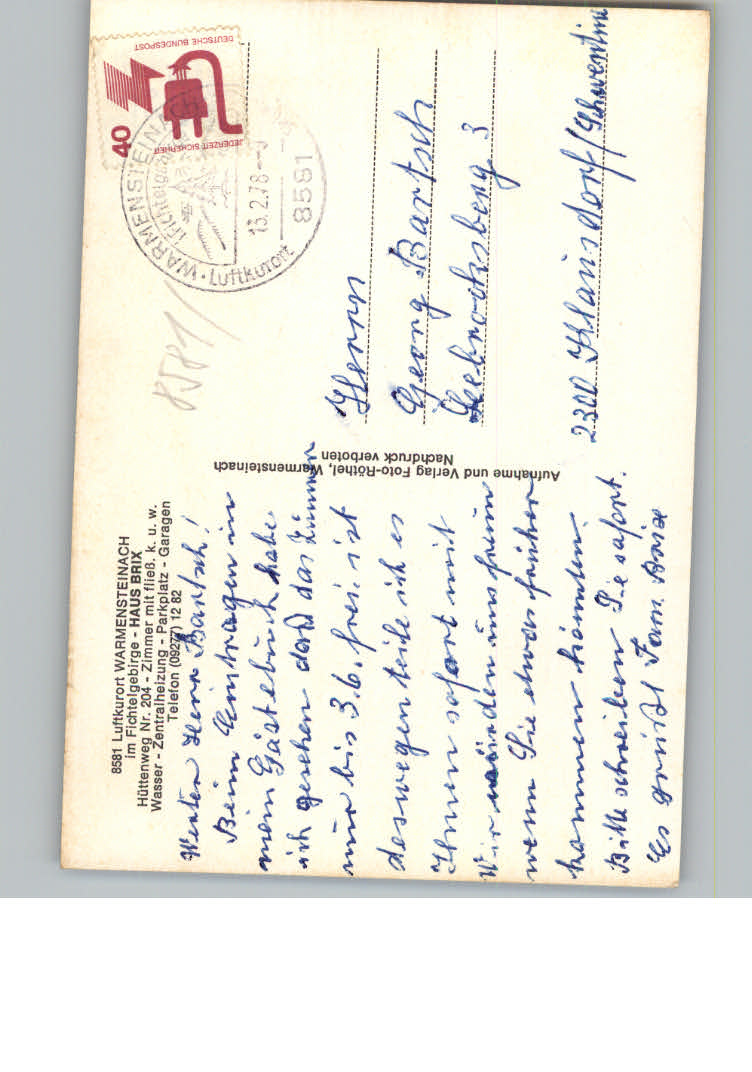 8581 Luftkurort WARMENSTEINACH
im Fichtelgebirge - HAUS BRIX
Hüttenweg Nr. 204 - Zimmer mit fließ. k. u. w.
Wasser - Zentralheizung - Parkplatz - Garagen
Telefon (09277) 12 82
Werter Herr Bartsch!
Beim Eintragen in
mein Gästebuch habe
ich gesehen daß das Zimmer
nur bis 3.6. frei ist
deswegen teile ich es
Ihnen sofort mit
Wir würden uns freun
wenn Sie etwas früher
kommen könnten.
Bitte schreiben Sie sofort.
Es grüßt Fam. Brix
Aufnahme und Verlag Foto-Röthel, Warmensteinach
Nachdruck verboten
8581/
DEUTSCHE BUNDESPOST
40
JEDERZEIT SICHERHEIT
WARMENSTEINACH
Fichtelgebirge
13.2.78
8581
Luftkurort
Herrn
Georg Bartsch
3
2300 Klausdorf/Schwentine